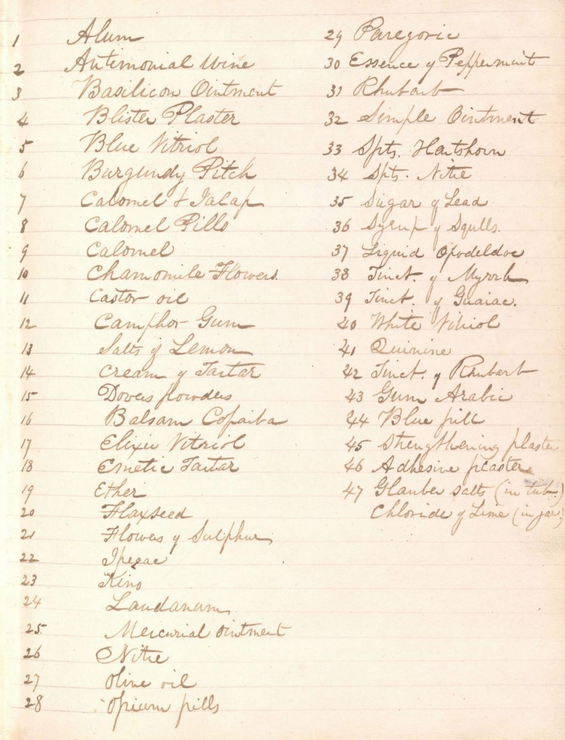 1 Alum
2 Antimonial Wine
3 Basilicon Ointment
4 Blister Plaster
5 Blue Vitriol
6 Burgundy Pitch
7 Calomel & Jalap
8 Calomel Pills
9 Calomel
10 Chamomile Flowers.
11 Castor oil
12 Camphor Gum
13 Salts of Lemon
14 Cream of Tartar
15 Dovers powders
16 Balsam Copaiba
17 Elixir Vitriol
18 Emetic Tartar
19 Ether
20 Flaxseed
21 Flowers of Sulphur
22 Ipecac
23 Kino
24 Laudanum
25 Mercurial ointment
26 Nitre
27 Olive oil
28 Opium pills
29 Paregoric
30 Essence of Peppermint
31 Rhubarb
32 Simple Ointment
33 Spts. Hartshorn
34 Spts. Nitre
35 Sugar of Lead
36 Syrup of Squills.
37 Liquid Opodeldoc
38 Tinct. of Myrrh
39 Tinct. of Guaiac.
40 White Vitriol
41 Quinine
42 Tinct. of Rhubarb
43 Gum Arabic
44 Blue pill
45 Strengthening plaster
46 Adhesive plaster
47 Glauber salts (in tub)
Chloride of Lime (in jar)